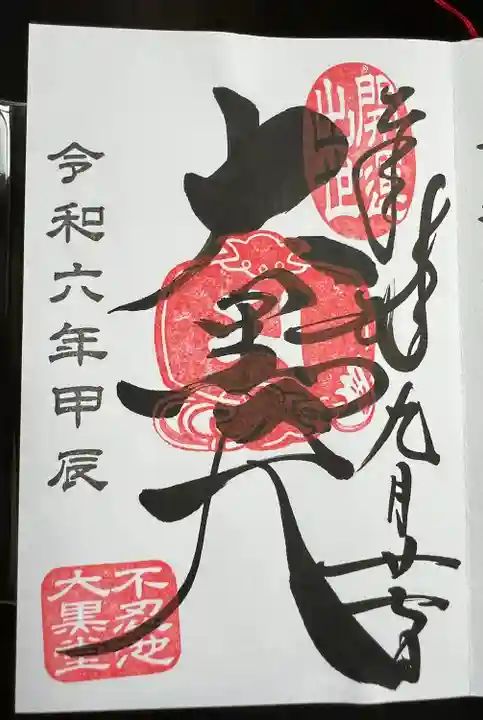 開運
出世
奉拝
九月廿一日
大黒天
令和六年甲辰
不忍池
大黒堂